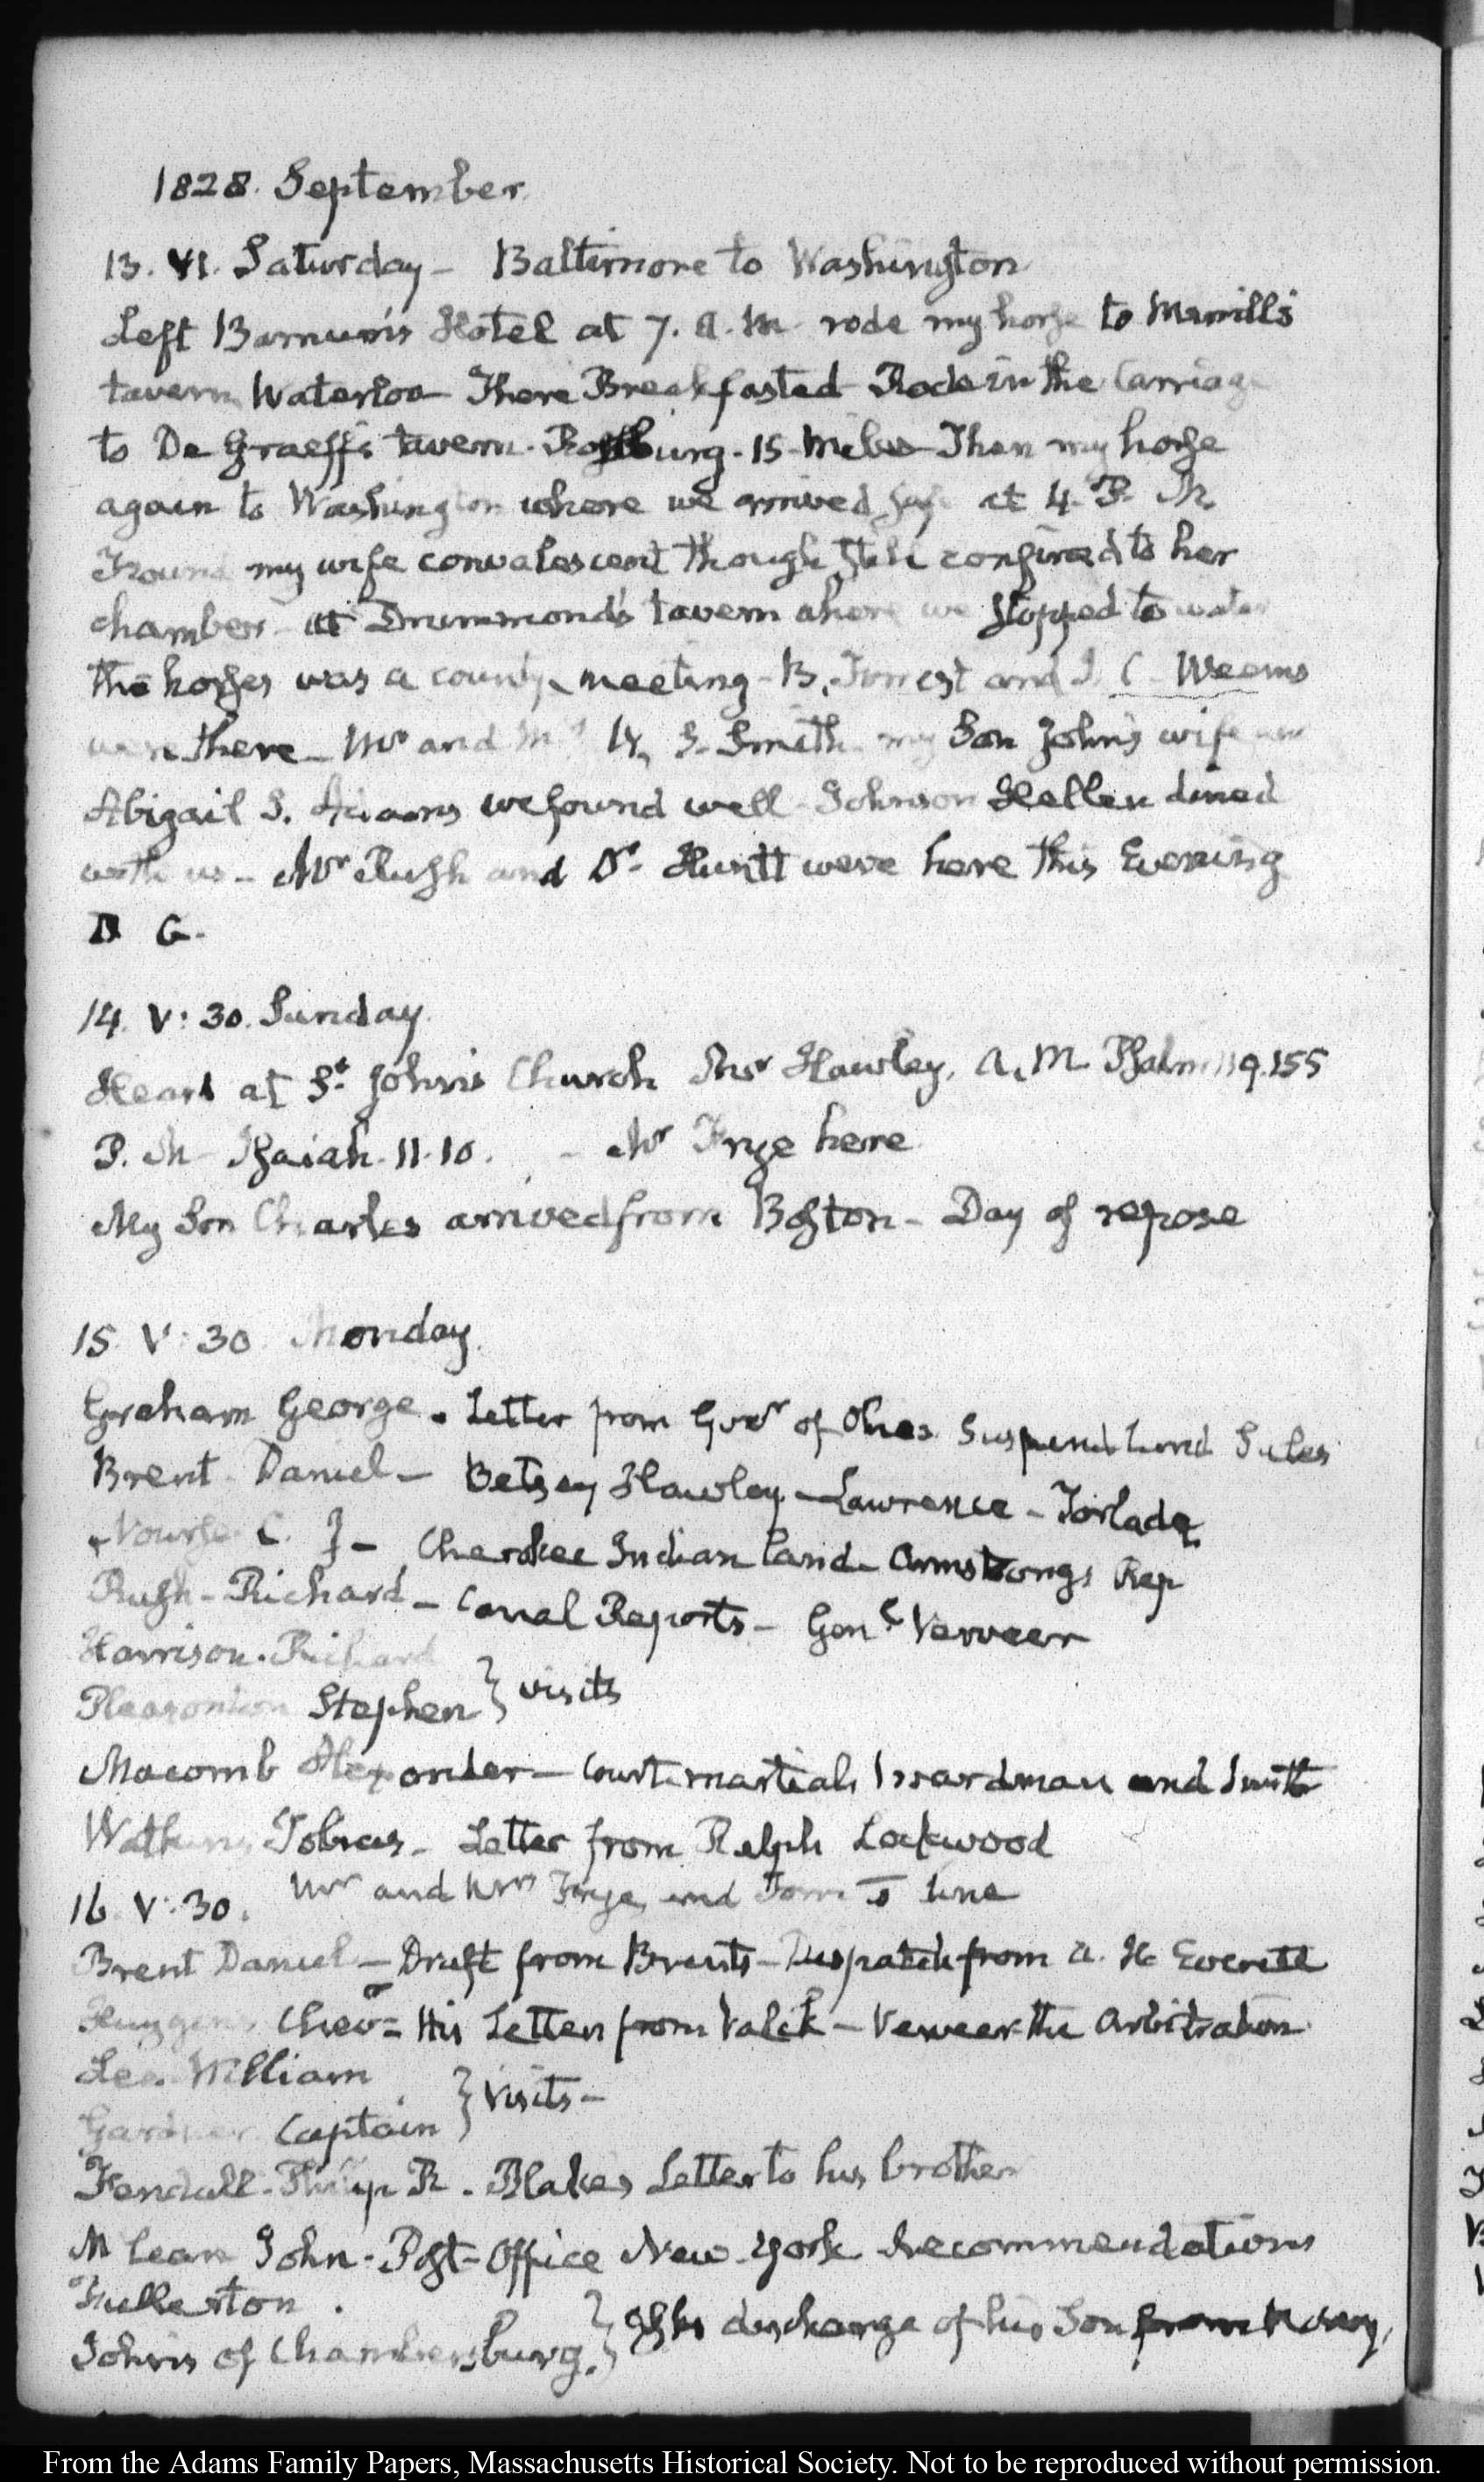 1828. September.
13. VI. Saturday – Baltimore to Washington
Left Barnum's Hotel at 7. A. M. rode my horse to Merrill's
tavern Waterloo – There Breakfasted – Rode in the Carriage
to De Graeff's tavern. Rossburg. 15. Miles – Then my horse
again to Washington where we arrived safe at 4. P. M.
Found my wife convalescent though still confined to her
chamber – at Drummond's tavern where we stopped to water
the horses was a county meeting – B. Forrest and J. C. Weems
were there – Mr and Mrs W. S. Smith my Son John's wife and
Abigail S. Adams we found well – Johnson Hellen dined
with us – Mr Rush and Dr Huntt were here this Evening
D. G.
14. V: 30. Sunday.
Heard at St John's Church Mr Hawley, A. M. Psalm 119.155
P. M. Isaiah. 11.10. – Mr Frye here
My Son Charles arrived from Boston – Day of repose
15. V: 30. Monday.
Graham George. Letter from Govr of Ohio. Suspend Land Sales
Brent. Daniel – Betsey Hawley – Lawrence – Torlade
Nourse C. J – Cherokee Indian land – Armstrong's Rep
Rush – Richard – Canal Reports – Genl Verveer
Harrison. Richard
Pleasonton Stephen } visits
Macomb Alexander – Court martial Boardman and Smith
Watkins Tobias – Letter from Ralph Lockwood
16. V: 30. Mr and Mrs Frye and Tom to dine
Brent Daniel – Draft from Brent – Despatch from A. H. Everett
Huygens Chevr – His Letter from Valck – Verveer the Arbitration
Lee. William
Gardner Captain } Visits –
Fendall. Philip R. Blake's Letter to his brother
McLean John – Post-Office New-York Recommendations
Fullerton.
Johns of Chambersburg. } discharge of his Son from Navy.
From the Adams Family Papers, Massachusetts Historical Society. Not to be reproduced without permission.